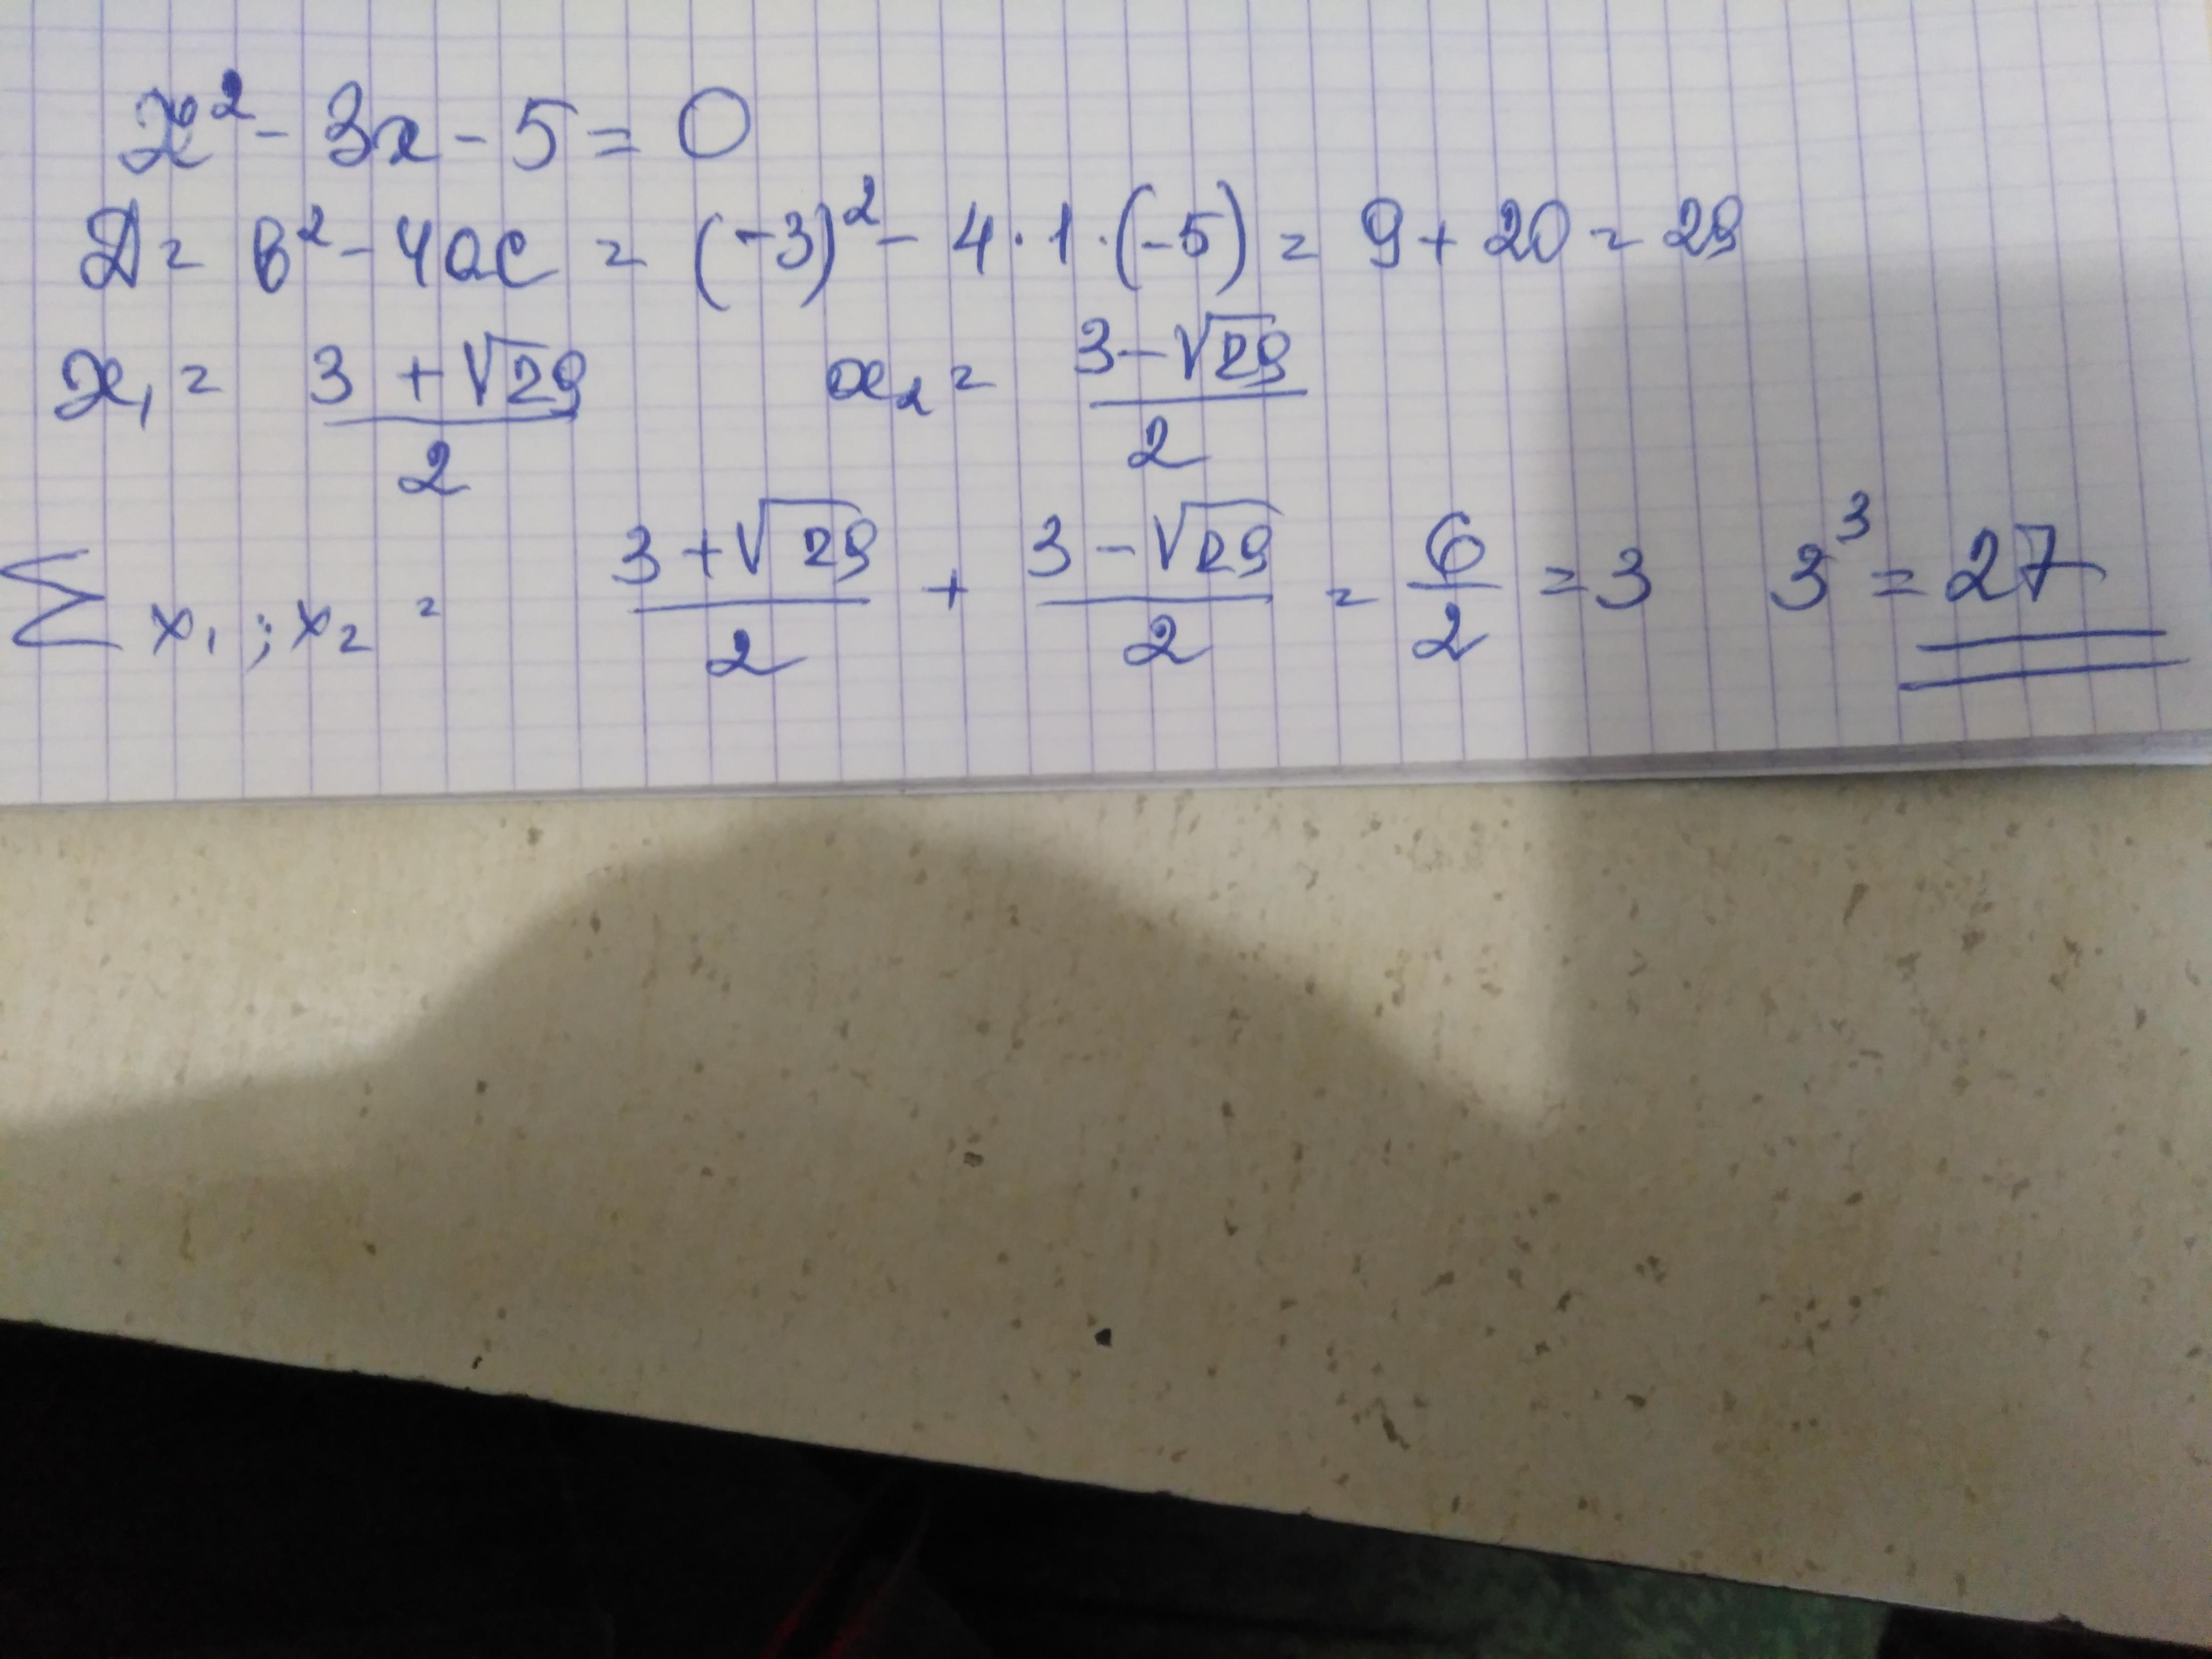 x² - 3x - 5 = 0
D = b² - 4ac = (-3)² - 4·1·(-5) = 9 + 20 = 29
x₁ = (3 + √29)/2    x₂ = (3 - √29)/2
∑ x₁ ; x₂ = (3 + √29)/2 + (3 - √29)/2 = 6/2 = 3    3³ = 27